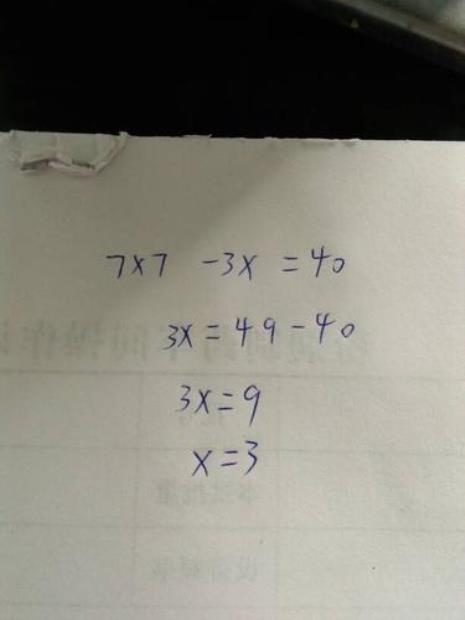 7×7 -3x = 40
3x = 49-40
3x=9
x=3